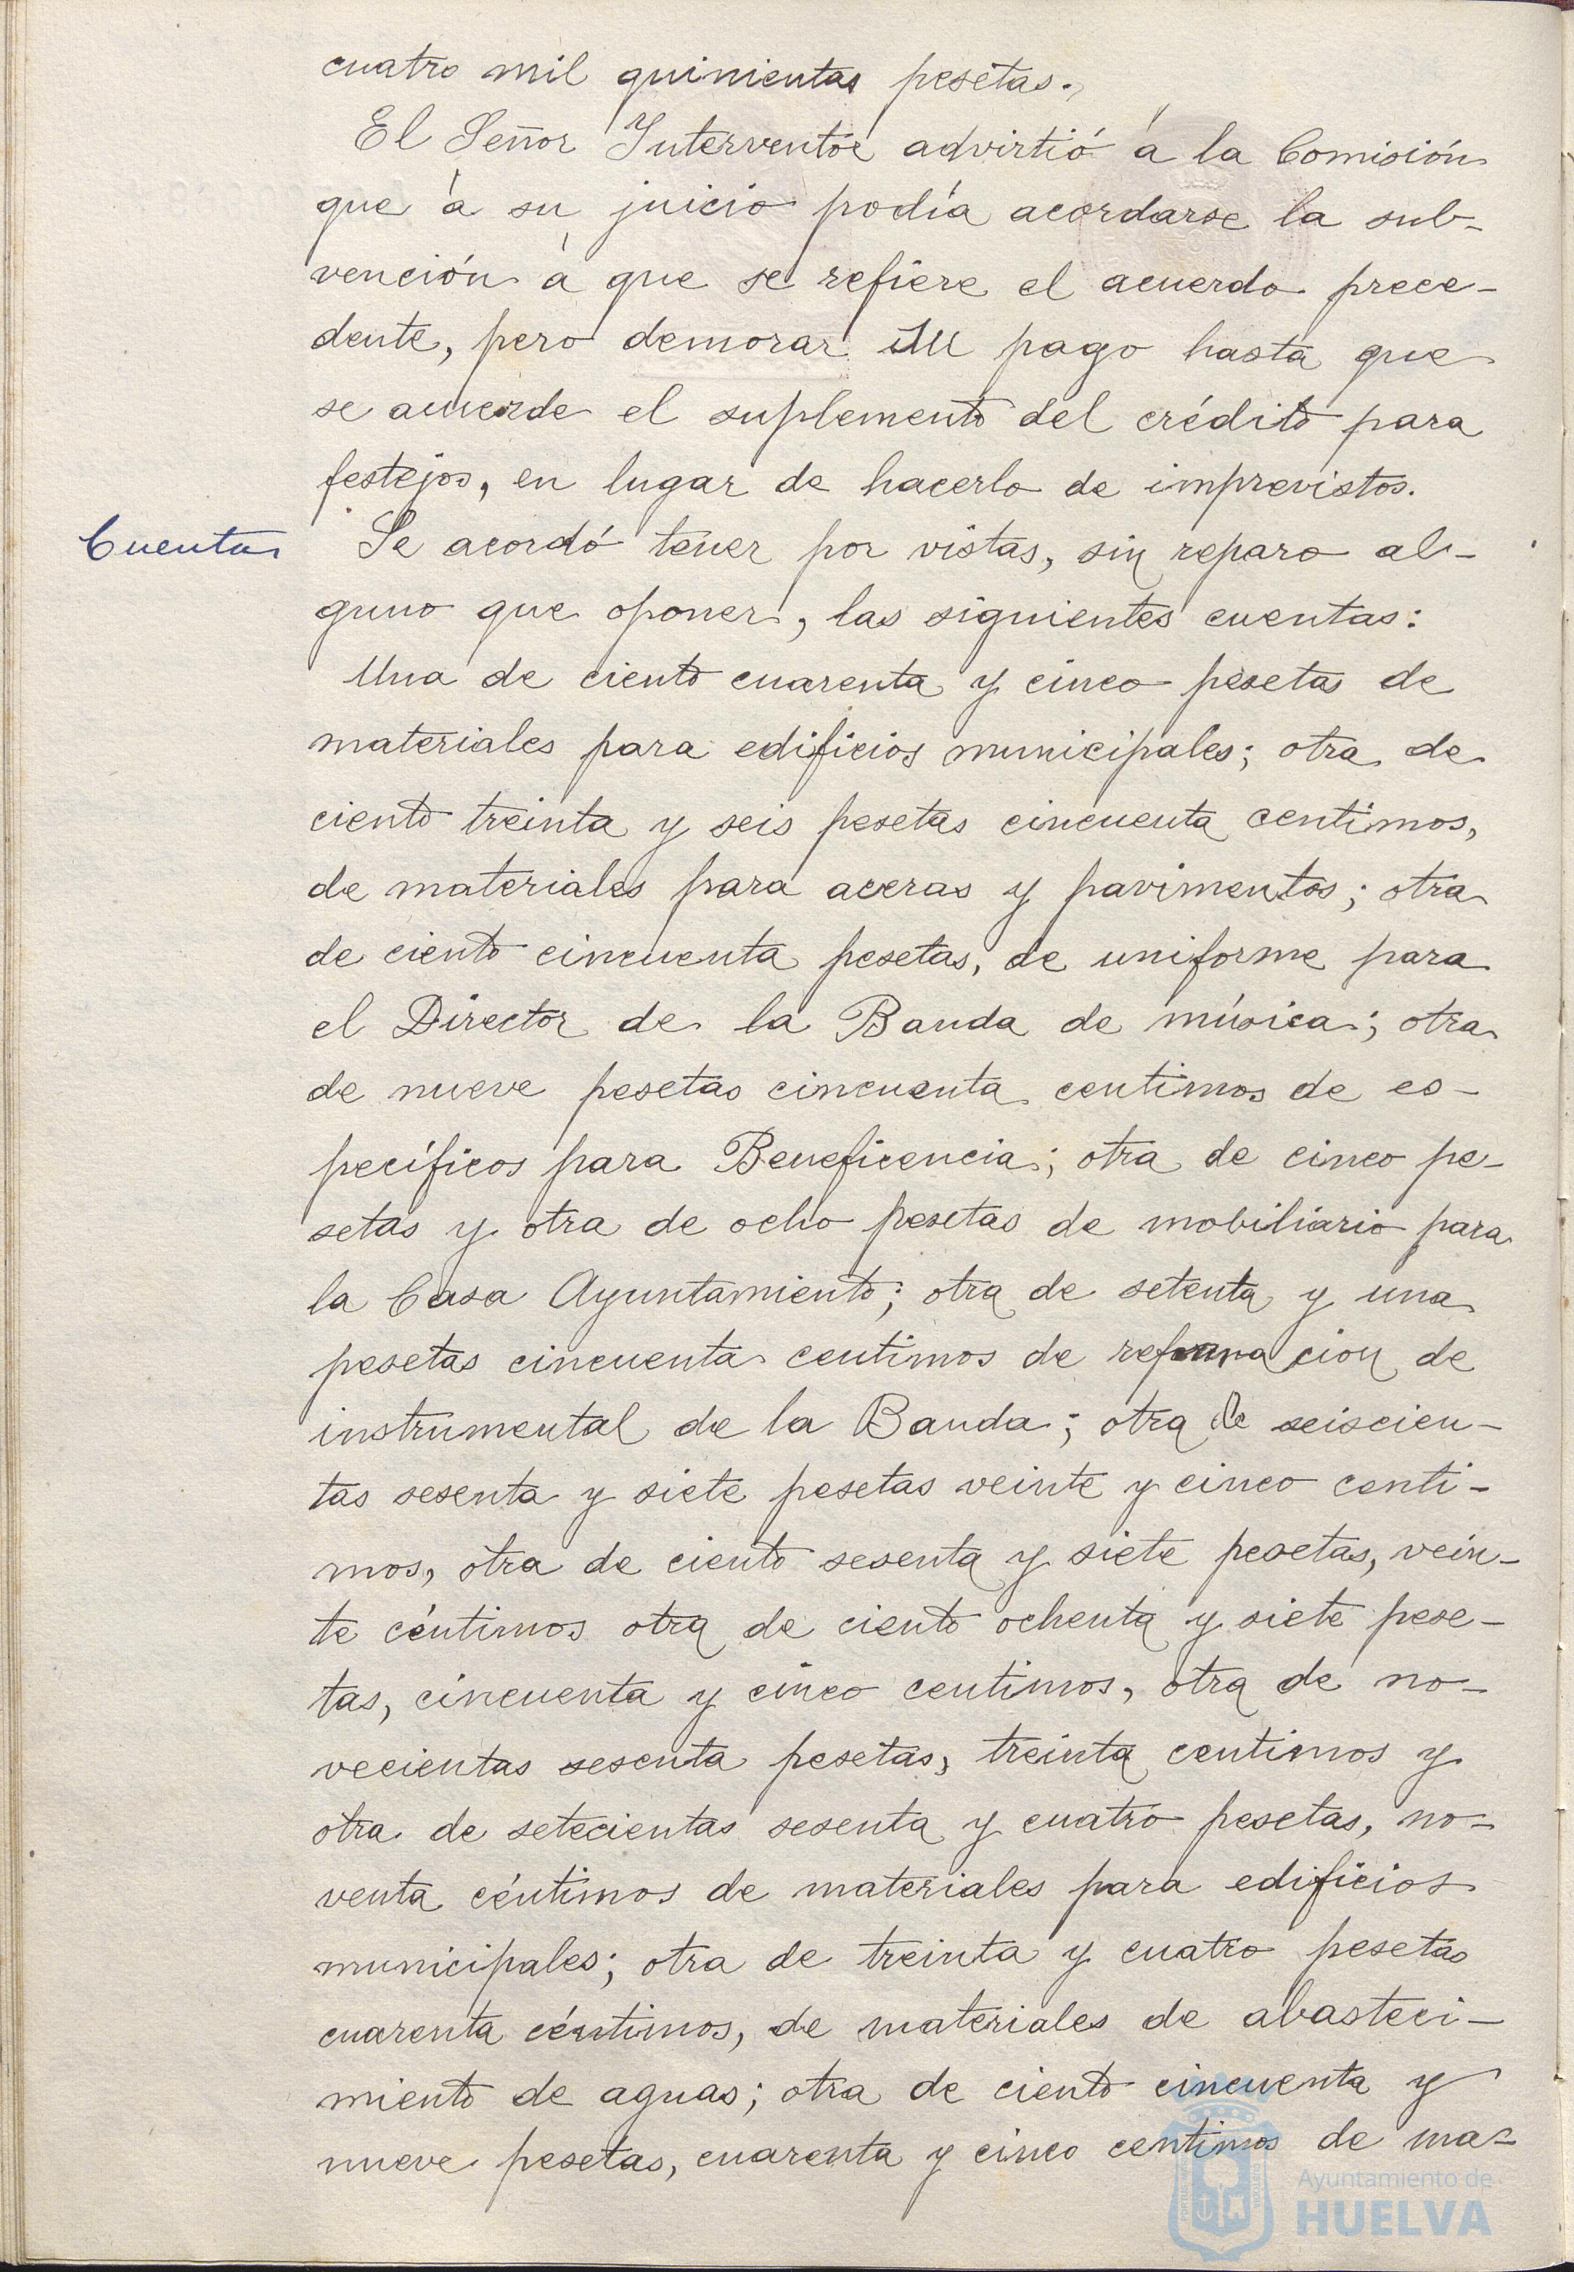 cuatro mil quinientas pesetas.
El Señor Interventor advirtió á la Comisión
que á su juicio podía acordarse la sub-
vención á que se refiere el acuerdo prece-
dente, pero demorar su pago hasta que
se acuerde el suplemento del crédito para
festejos, en lugar de hacerlo de imprevistos.
Cuentas Se acordó tener por vistas, sin reparo al-
guno que oponer, las siguientes cuentas:
Una de ciento cuarenta y cinco pesetas de
materiales para edificios municipales; otra de
ciento treinta y seis pesetas cincuenta centimos,
de materiales para aceras y pavimentos; otra
de ciento cincuenta pesetas, de uniforme para
el Director de la Banda de música; otra
de nueve pesetas cincuenta centimos de es-
pecíficos para Beneficencia; otra de cinco pe-
setas y otra de ocho pesetas de mobiliario para
la Casa Ayuntamiento; otra de setenta y una
pesetas cincuenta centimos de de
instrumental de la Banda; otra de seiscien-
tas sesenta y siete pesetas veinte y cinco centi-
mos, otra de ciento sesenta y siete pesetas, vein-
te céntimos otra de ciento ochenta y siete pese-
tas, cincuenta y cinco centimos, otra de no-
vecientas sesenta pesetas, treinta centimos y
otra de setecientas sesenta y cuatro pesetas, no-
venta céntimos de materiales para edificios
municipales; otra de treinta y cuatro pesetas
cuarenta céntimos, de materiales de abasteci-
miento de aguas; otra de ciento cincuenta y
nueve pesetas, cuarenta y cinco centimos de ma-
Ayuntamiento de
HUELVA